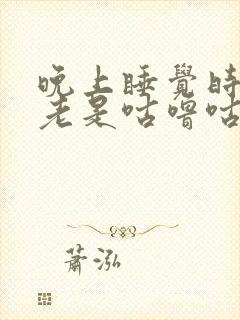 晚上睡覺時
老是咕嚕咕
蕭泓